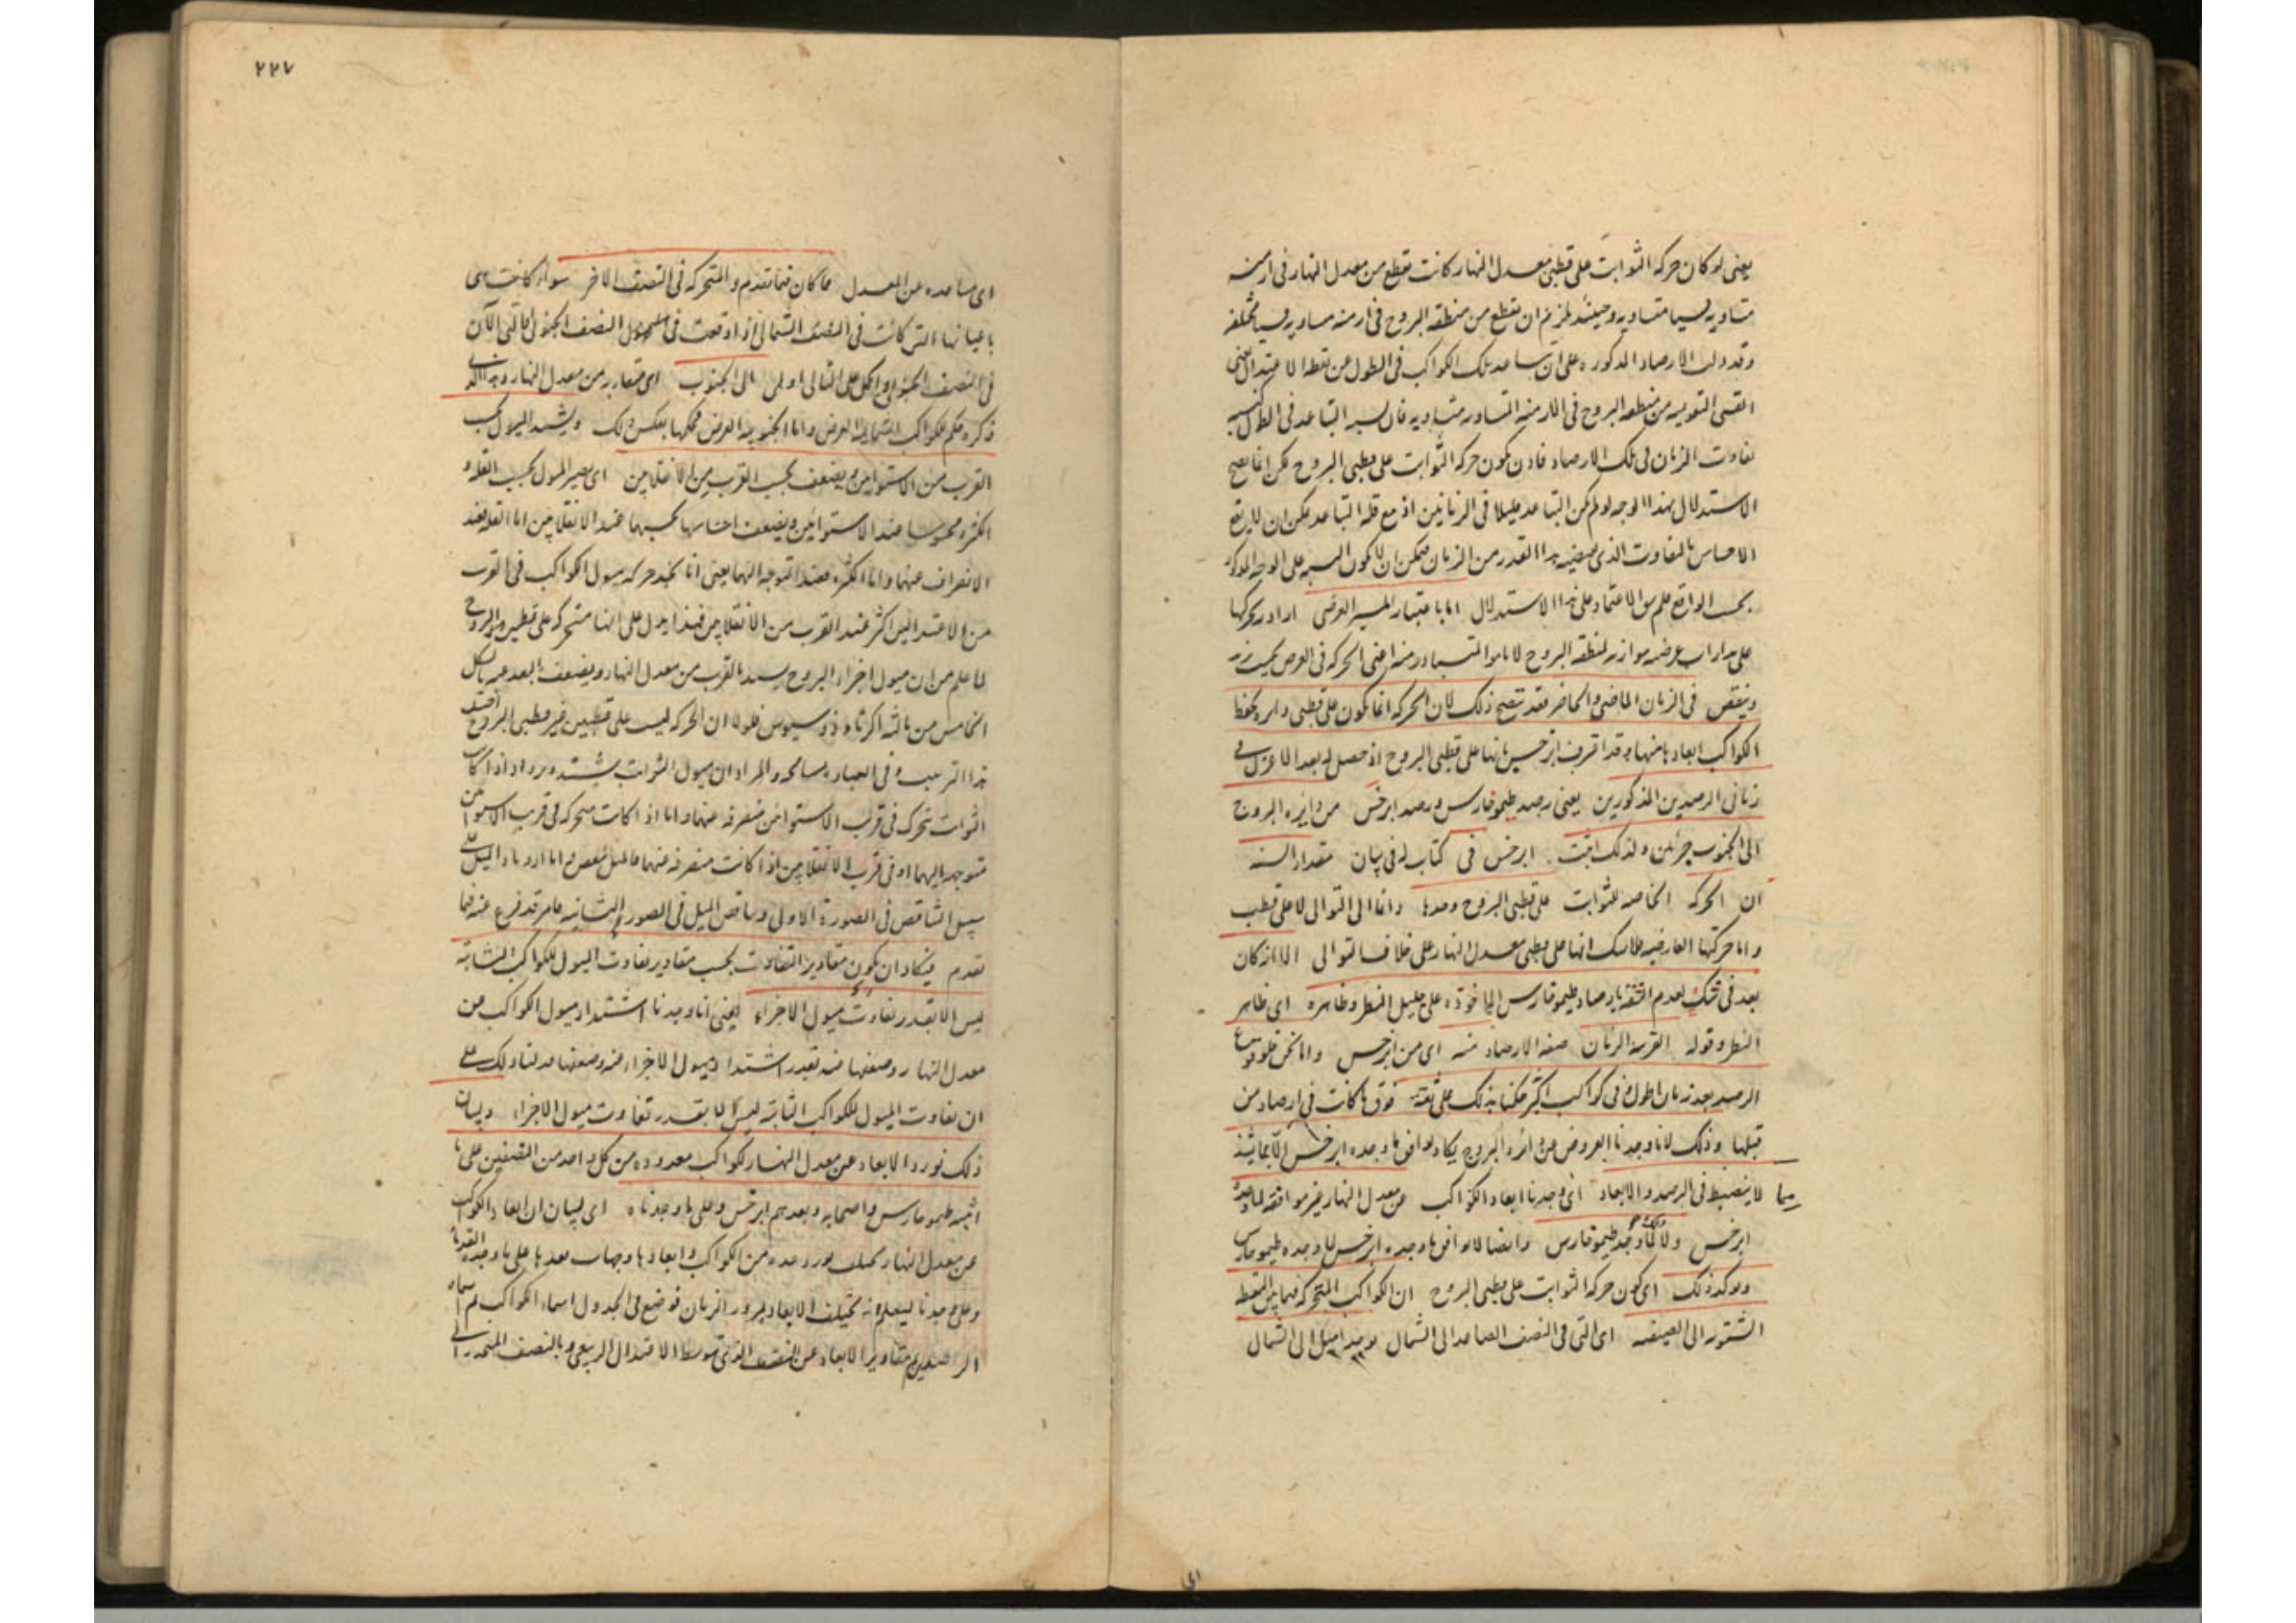 يعنى لو كان حركه الثوابت على قطبى معدل النهار كانت تقطع من معدل النهار فى ازمنه
متساويه قسيا متساويه وحينئذ يلزم ان تقطع من منطقه البروج فى ازمنه متساويه قسيا مختلفه
وقد دلت الارصاد المذكوره على ان تباعد تلك الكواكب فى الطول عن نقطه الاعتدال
القسى من منطقه البروج فى الازمنه المتساويه متساويه فان نسبه التباعد فى الطول
تفاوت الزمان فى تلك الارصاد فاذن يكون حركه الثوابت على قطبى البروج لكن انما يصح
الاستدلال بهذا الوجه لو لم يكن التباعد قليلا فى الزمانين اذ مع قله التباعد يمكن ان لا يقع
الاحساس بالتفاوت الذى يقتضيه هذا القدر من الزمان فيمكن ان لا يكون السير على الوجه المذكور
بحسب الواقع فلم يبق الاعتماد على هذا الاستدلال اما باعتبار المسير العرضى اراد بحركتها
على مدارات عرضيه موازيه لمنطقه البروج لا ما هو المتبادر منه اعنى الحركه فى العرض بحيث يزيد
وينقص فى الزمان الماضى والحاضر فقد يتضح ذلك لان الحركه انما يكون على قطبى دايره يحفظ
الكواكب ابعادها منها وقد اعترف ابرخس بانها على قطبى البروج اذ حصل له بعد الاعزل فى
زمانى الرصدين المذكورين يعنى رصد طيموخارس ورصد ابرخس من دايره البروج
الى الجنوب جزئين ولذلك اثبت ابرخس فى كتاب له فى بيان مقدار السنه
ان الحركه الخاصه للثوابت على قطبى البروج وحدها وانها الى التوالى لا على قطب
واما حركتها العارضيه فلا شك انها على قطبى معدل النهار على خلاف التوالى الا انه كان
بعد فى شك لعدم الثقه بارصاد طيموخارس الماخوذه على جليل النظر وظاهره اى ظاهر
النظر وقوله القريبه الزمان صفه الارصاد منه اى من ابرخس واما نحن فلوقوع
الرصد بعد زمان اطول وفى كواكب اكثر حكمنا بذلك على ثقه فوق ما كانت فى ارصاد من
قبلنا وذلك لانا وجدنا العروض عن دائره البروج يكاد يوافق ما وجده ابرخس الا بما يشذ
مما لا ينضبط فى الرصد والابعاد اى وجدنا ابعاد الكواكب عن معدل النهار غير موافقه لما وجده
ابرخس ولا لما وجد طيموخارس وايضا لا يوافق ما وجده ابرخس لما وجده طيموخارس
ويوكد ذلك اى كون حركه الثوابت على قطبى البروج ان الكواكب المتحركه فيما بين النقطه
الشتويه الى الصيفيه اى التى فى النصف الصاعد الى الشمال يوجد اميل الى الشمال
اى
٢٢٧
اى مباعده عن المعدل مما كان فيما تقدم والمتحركه فى النصف الاخر سواء كانت هى
باعيانها التى كانت فى النصف الشمالى اذا وقعت فى النصف الجنوبى او التى الان
فى النصف الجنوبى الى الجنوب اى متقاربه من معدل النهار وهذا الذى
ذكره حكم للكواكب الشماليه العرض واما الجنوبيه العرض فحكمها بعكس ذلك ويشتد الميول بحسب
القرب من الاستوائين ويضعف بحسب القرب من الانقلابين اى يصير الميول بحسب القله و
الكثره محسوسا عند الاستوائين ويضعف احساسها بحسبهما عند الانقلابين اما القله فعند
الانصراف عنهما واما الكثره فعند التوجه اليهما يعنى انا نجد حركه ميول الكواكب فى القرب
من الاعتدالين اكثر عند القرب من الانقلابين فهذا يدل على انها متحركه على قطبى البروج
لما علم من ان ميول اجزاء البروج يشتد بالقرب من معدل النهار ويضعف بالبعد عنه بالشكل
الخامس من ثالثه اكر ثاوذوسيوس فلولا ان الحركه ليست على قطبين غير قطبى البروج
هذا الترتيب وفى العباره مسامحه والمراد ان ميول الثوابت يشتد ويزداد اذا كانت
الثوابت تتحرك فى قرب الاستوائين منصرفه عنهما واما اذا كانت متحركه فى قرب الاستوائين
متوجهه اليهما او فى قرب الانقلابين اذا كانت منصرفه عنهما فالميل ينقص واما ازدياد الميل على
سبيل التناقص فى الصورة الاولى وتناقص الميل فى الصور الثانيه مما مر قد فرغ عنه فيما
تقدم فيكاد ان يكون مقادير التفاوت بحسب مقادير تفاوت الميول للكواكب الثابته
ليس الا بقدر تفاوت ميول الاجزاء يعنى انا وجدنا اشتداد ميول الكواكب من
معدل النهار وضعفها منه بقدر اشتداد ميول الاجزاء منه وضعفها فدلنا ذلك على
ان تفاوت الميول للكواكب الثابته ليس الا بقدر تفاوت ميول الاجزاء وبيان
ذلك نورد الابعاد عن معدل النهار لكواكب معدوده من كل واحد من النصفين على ما
اثبته طيموخارس واصحابه وبعدهم ابرخس وعلى ما وجدناه اى لبيان ان ابعاد الكواكب
عن معدل النهار يختلف نورد عده من الكواكب وابعادها وجهات بعدها على ما وجده القدماء
وعلى ما وجدنا ليعلم انه يختلف الابعاد بمرور الزمان فوضع فى الجدول اسماء الكواكب ثم اسماء
الراصدين ثم مقادير الابعاد عن النصف الذى توسط الاعتدال الربيعى وبالنصف المنحدر الى